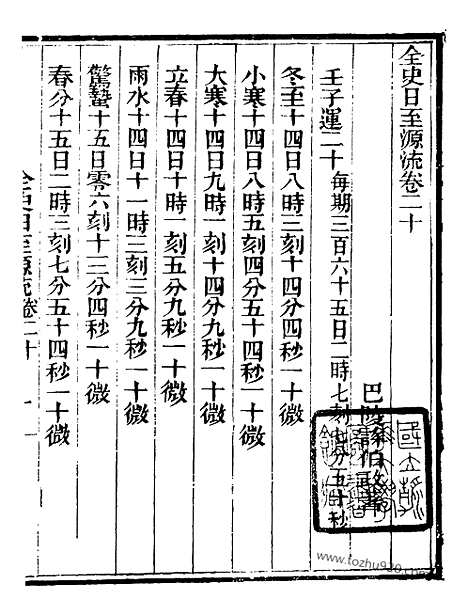 全史日至源流卷二十
巴陵許伯政
壬子運二十每期三百六十五日二時七刻七分五十秒
冬至十四日八時三刻十四分四秒一十微
小寒十四日八時五刻四分五十四秒一十微
大寒十四日九時一刻十四分九秒一十微
立春十四日十時一刻五分九秒一十微
雨水十四日十一時三刻三分九秒一十微
驚蟄十五日零六刻十三分四秒一十微
春分十五日二時三刻七分五十四秒一十微
全史日至源流卷二十
www.fozhu920.com